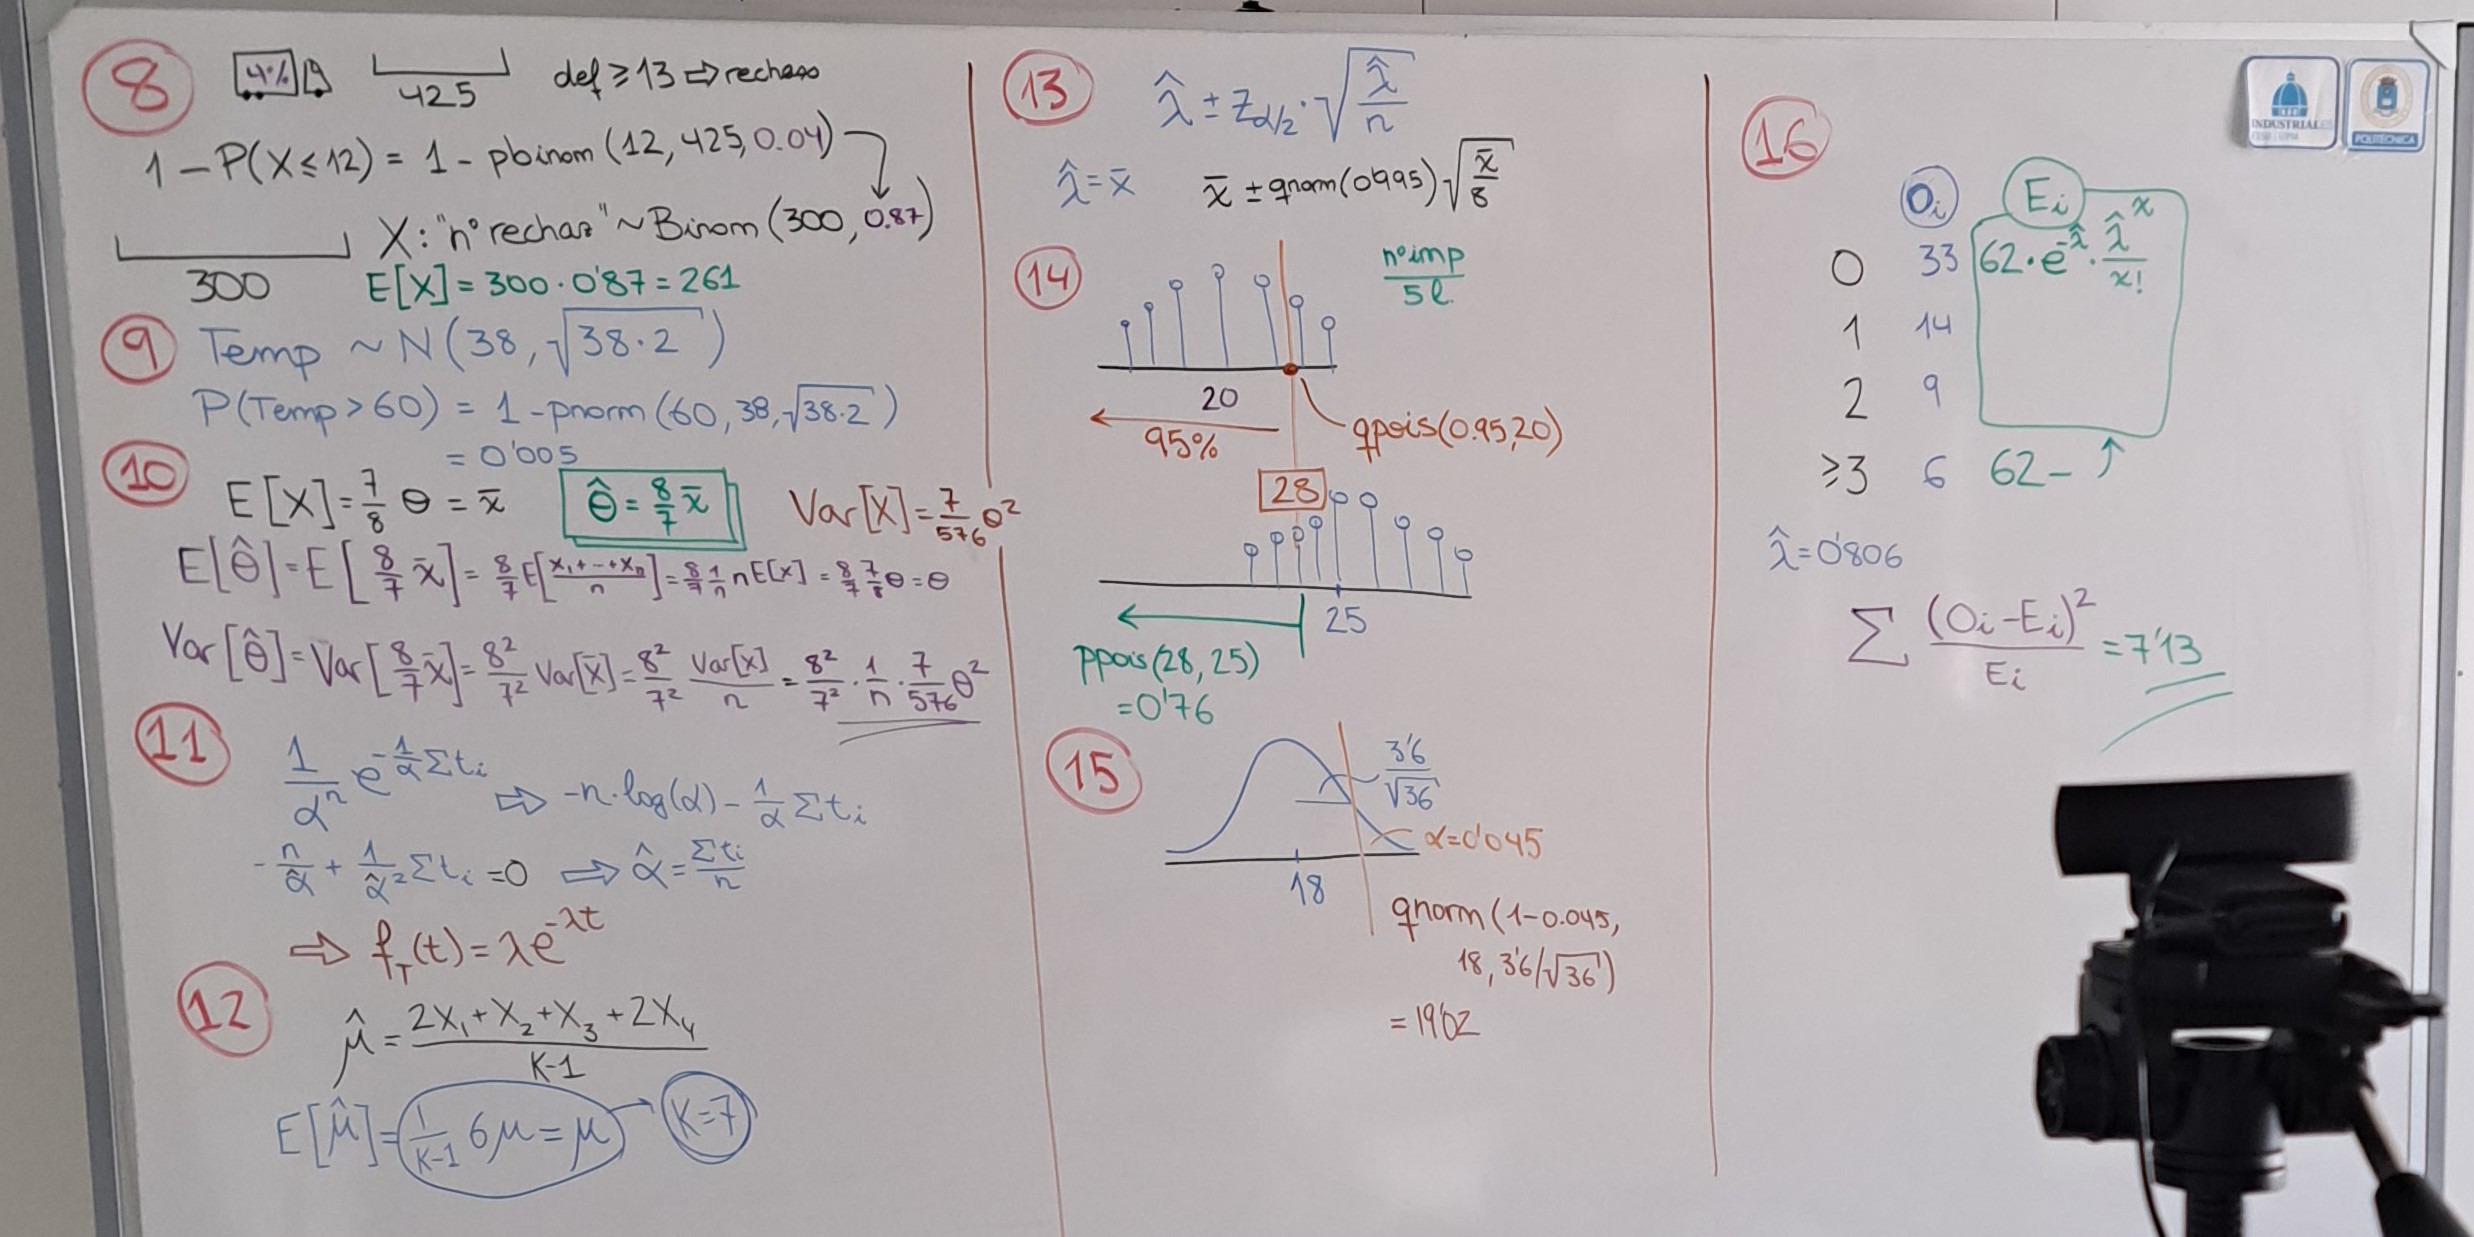 8
4%
425
def ≥ 13 ⇒ rechazo
1 - P(X ≤ 12) = 1 - pbinom(12, 425, 0.04)
X: "nº rechaz" ~ Binom(300, 0.87)
300
E[X] = 300 · 0'87 = 261
9
Temp ~ N(38, √38·2)
P(Temp > 60) = 1 - pnorm(60, 38, √38·2)
= 0'005
10
E[X] = 7/8 θ = x̄
θ̂ = 8/7 x̄
Var[X] = 7/576 θ²
E[θ̂] = E[8/7 x̄] = 8/7 E[(x₁+--+xₙ)/n] = 8/7 1/n nE[x] = 8/7 7/8 θ = θ
Var[θ̂] = Var[8/7 x̄] = 8²/7² Var[x̄] = 8²/7² Var[x]/n = 8²/7² · 1/n · 7/576 θ²
11
1/αⁿ e^(-1/α Σtᵢ) ⇒ -n·log(α) - 1/α Σtᵢ
-n/α̂ + 1/α̂² Σtᵢ = 0 ⇒ α̂ = Σtᵢ/n
⇒ f_T(t) = λe^(-λt)
12
μ̂ = (2X₁+X₂+X₃+2X₄)/(K-1)
E[μ̂] = 1/(K-1) 6μ = μ → K=7
13
λ̂ ± Z_α/2 · √(λ̂/n)
λ̂ = x̄
x̄ ± qnorm(0'995) √(x̄/8)
14
nº imp
5l.
20
95%
qpois(0.95, 20)
28
25
ppois(28, 25)
= 0'76
15
3'6
√36
α=0'045
18
qnorm(1-0.045,
18, 3'6/√36)
= 19'02
16
Oᵢ Eᵢ
0 33 62·e^(-λ̂) · λ̂^x/x!
1 14
2 9
≥3 6 62 - ↑
λ̂ = 0'806
Σ (Oᵢ-Eᵢ)²/Eᵢ = 7'13
INDUSTRIALES
POLITÉCNICA